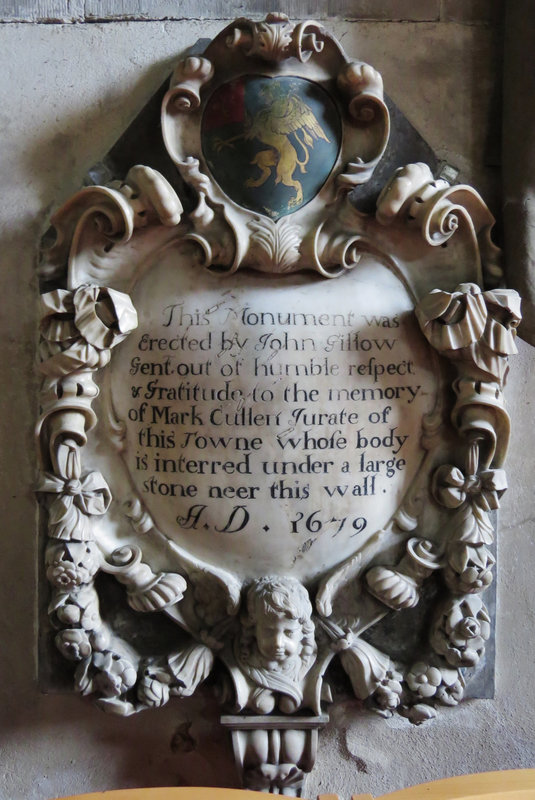 This Monument was
Erected by John Gillow
Gent. out of humble respect
& Gratitude to the memory
of Mark Cullen Jurate of
this Towne whose body
is interred under a large
stone neer this wall.
A.D. 1679